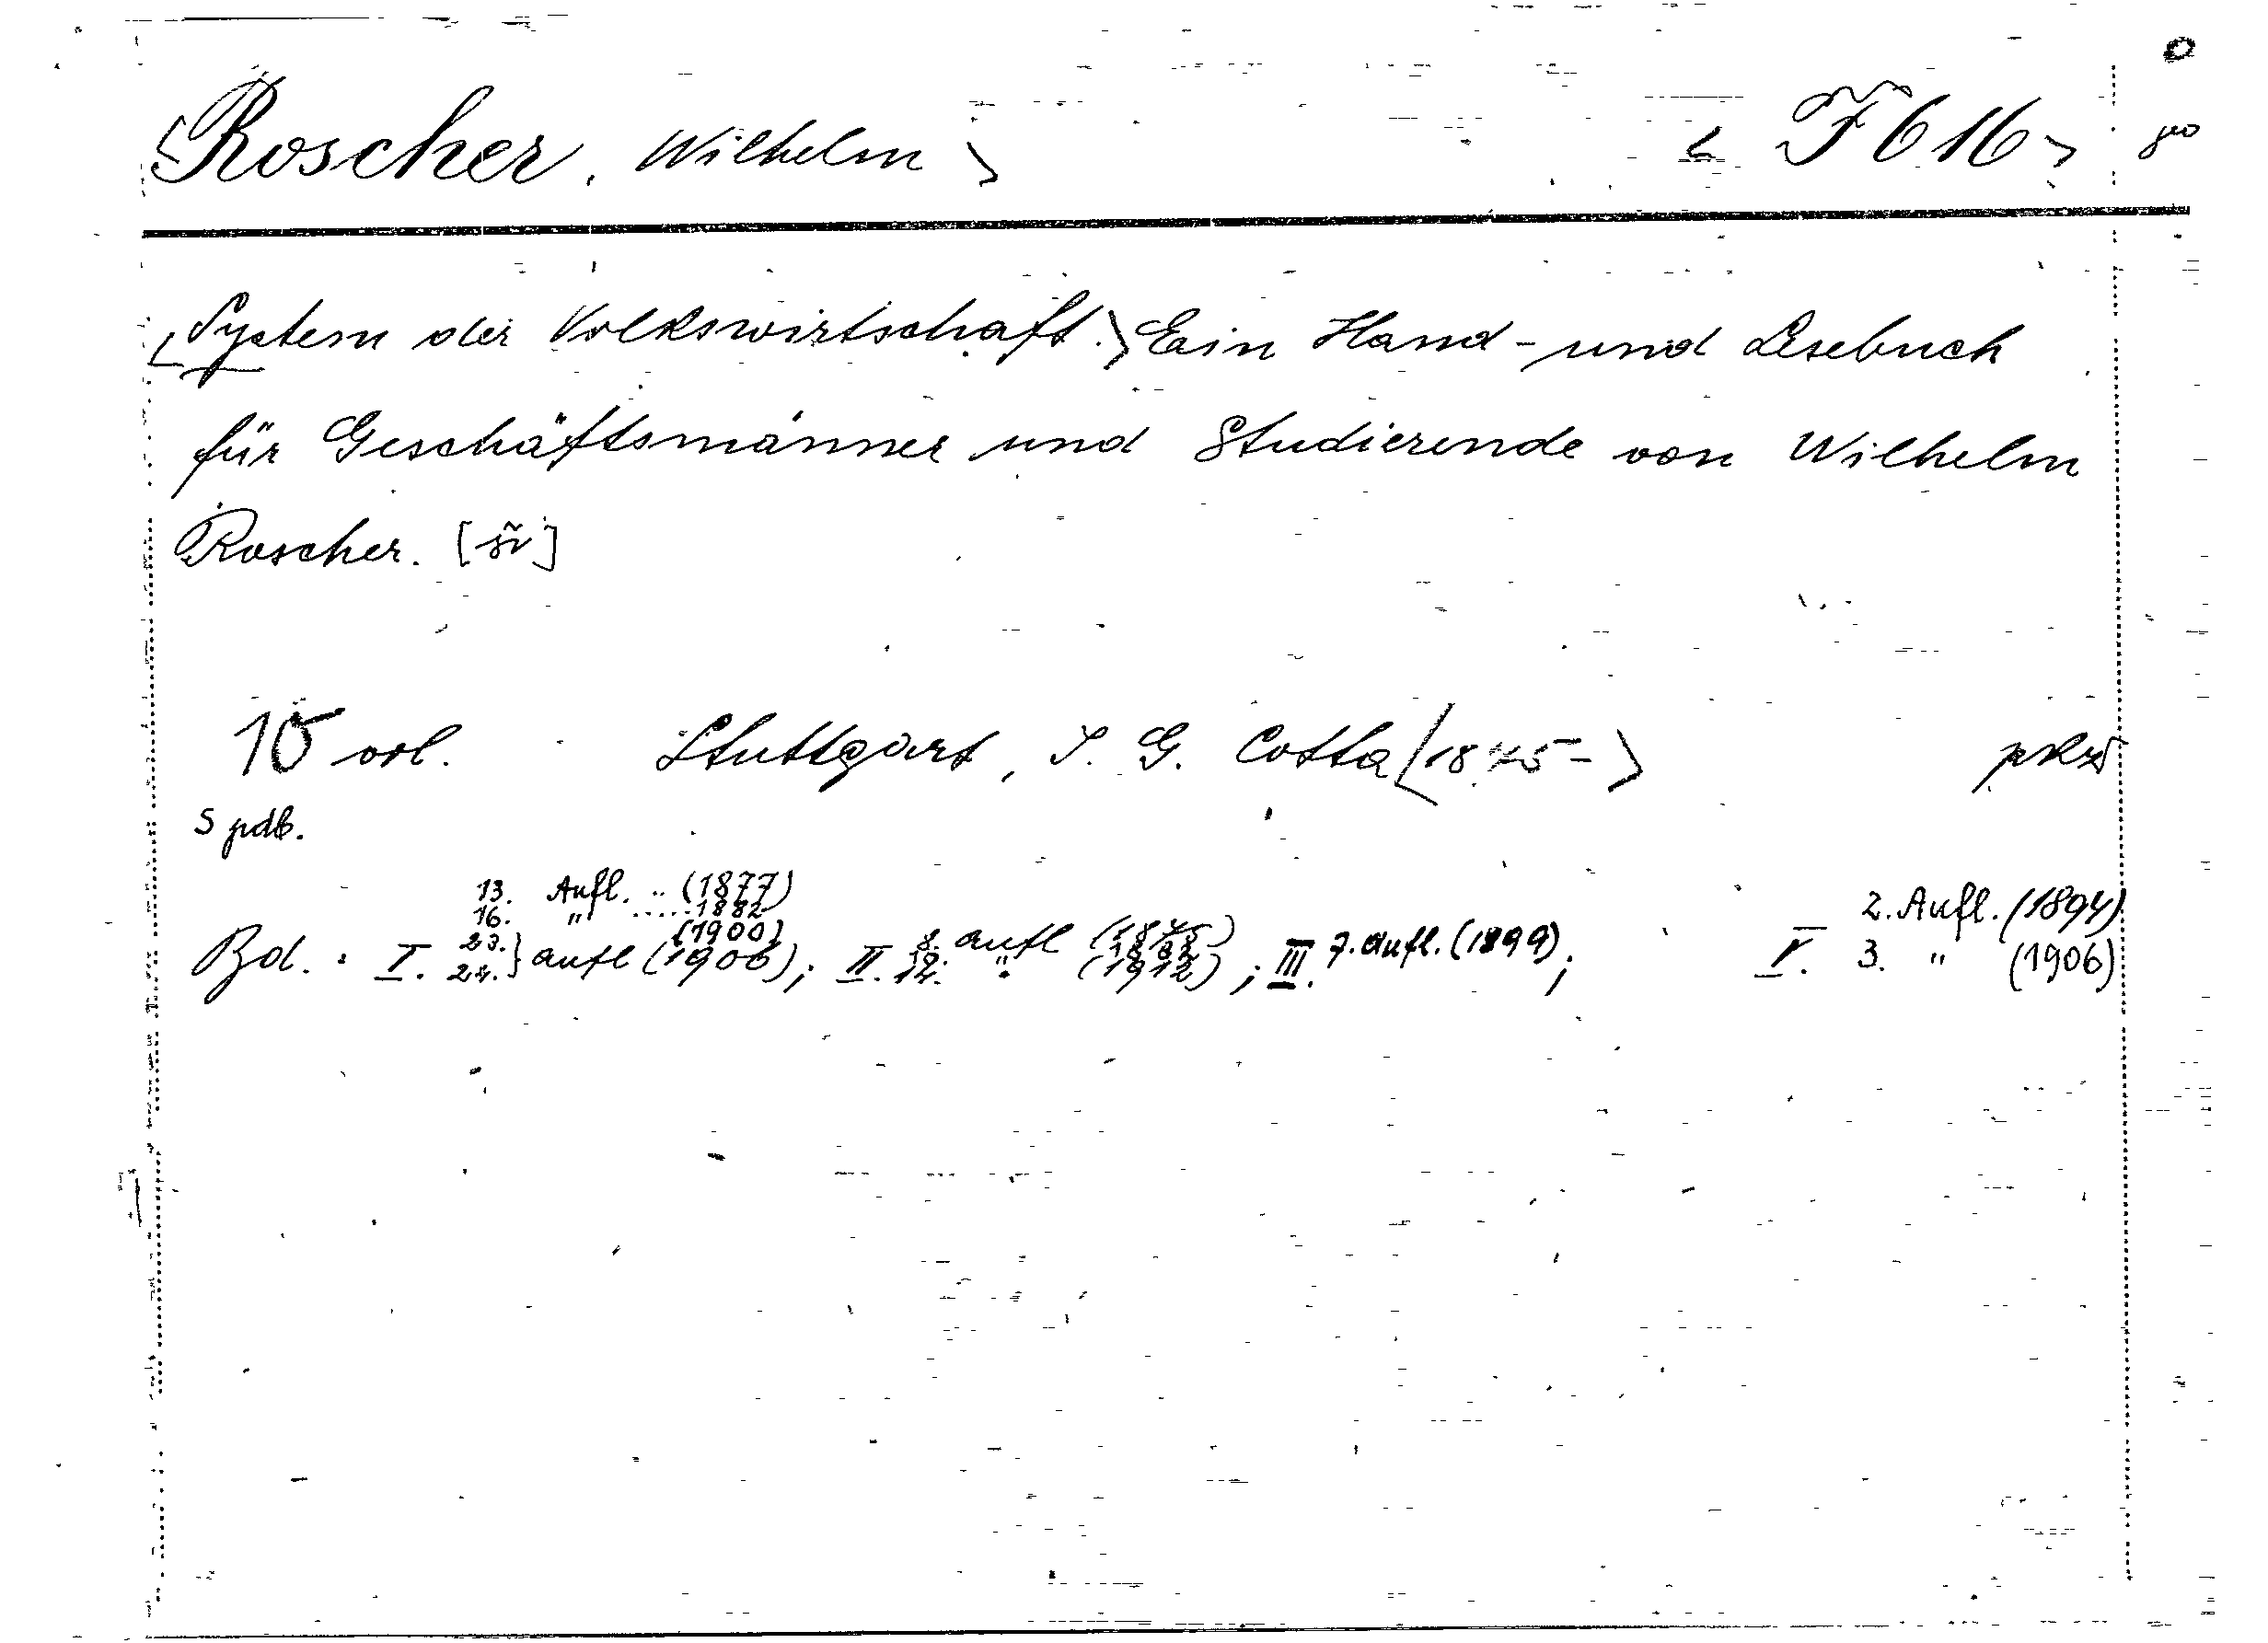 <Roscher, Wilhelm> <F 616>
<System der Volkswirtschaft.> Ein Hand- und Lesebuch
für Geschäftsmänner und Studierende von Wilhelm
Roscher. [šv]
10 vol. Stuttgart, J. G. Cotta <1875->
5 pdb.
13. Aufl. .. (1877)
16. " ..... 1882
Bd. : I. 23. 24.} aufl (1900) (1906); II. 8. 12. aufl " (1912); III. 7. aufl. (1899); V. 2. Aufl. (1894) 3. " (1906)